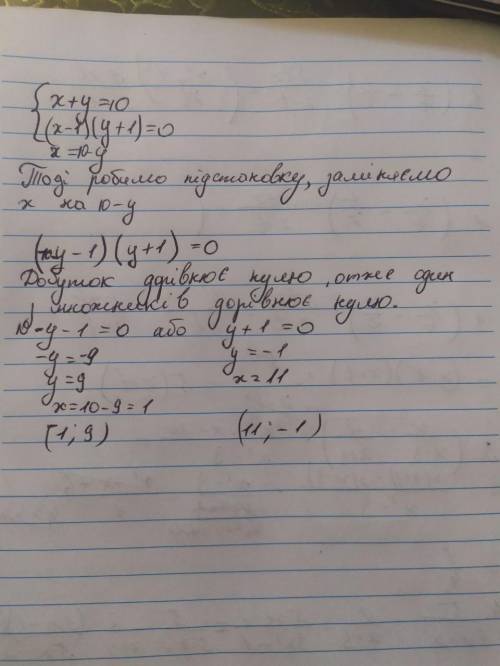 { x+y=10
(x-1)(y+1)=0
x=10-y
Тоді робимо підстановку, заміняємо
x на 10-y
(10-y-1)(y+1)=0
Добуток дорівнює нулю, отже один
із множників дорівнює нулю.
10-y-1=0 або y+1=0
-y=-9 y=-1
y=9 x=11
x=10-9=1
(1;9) (11;-1)